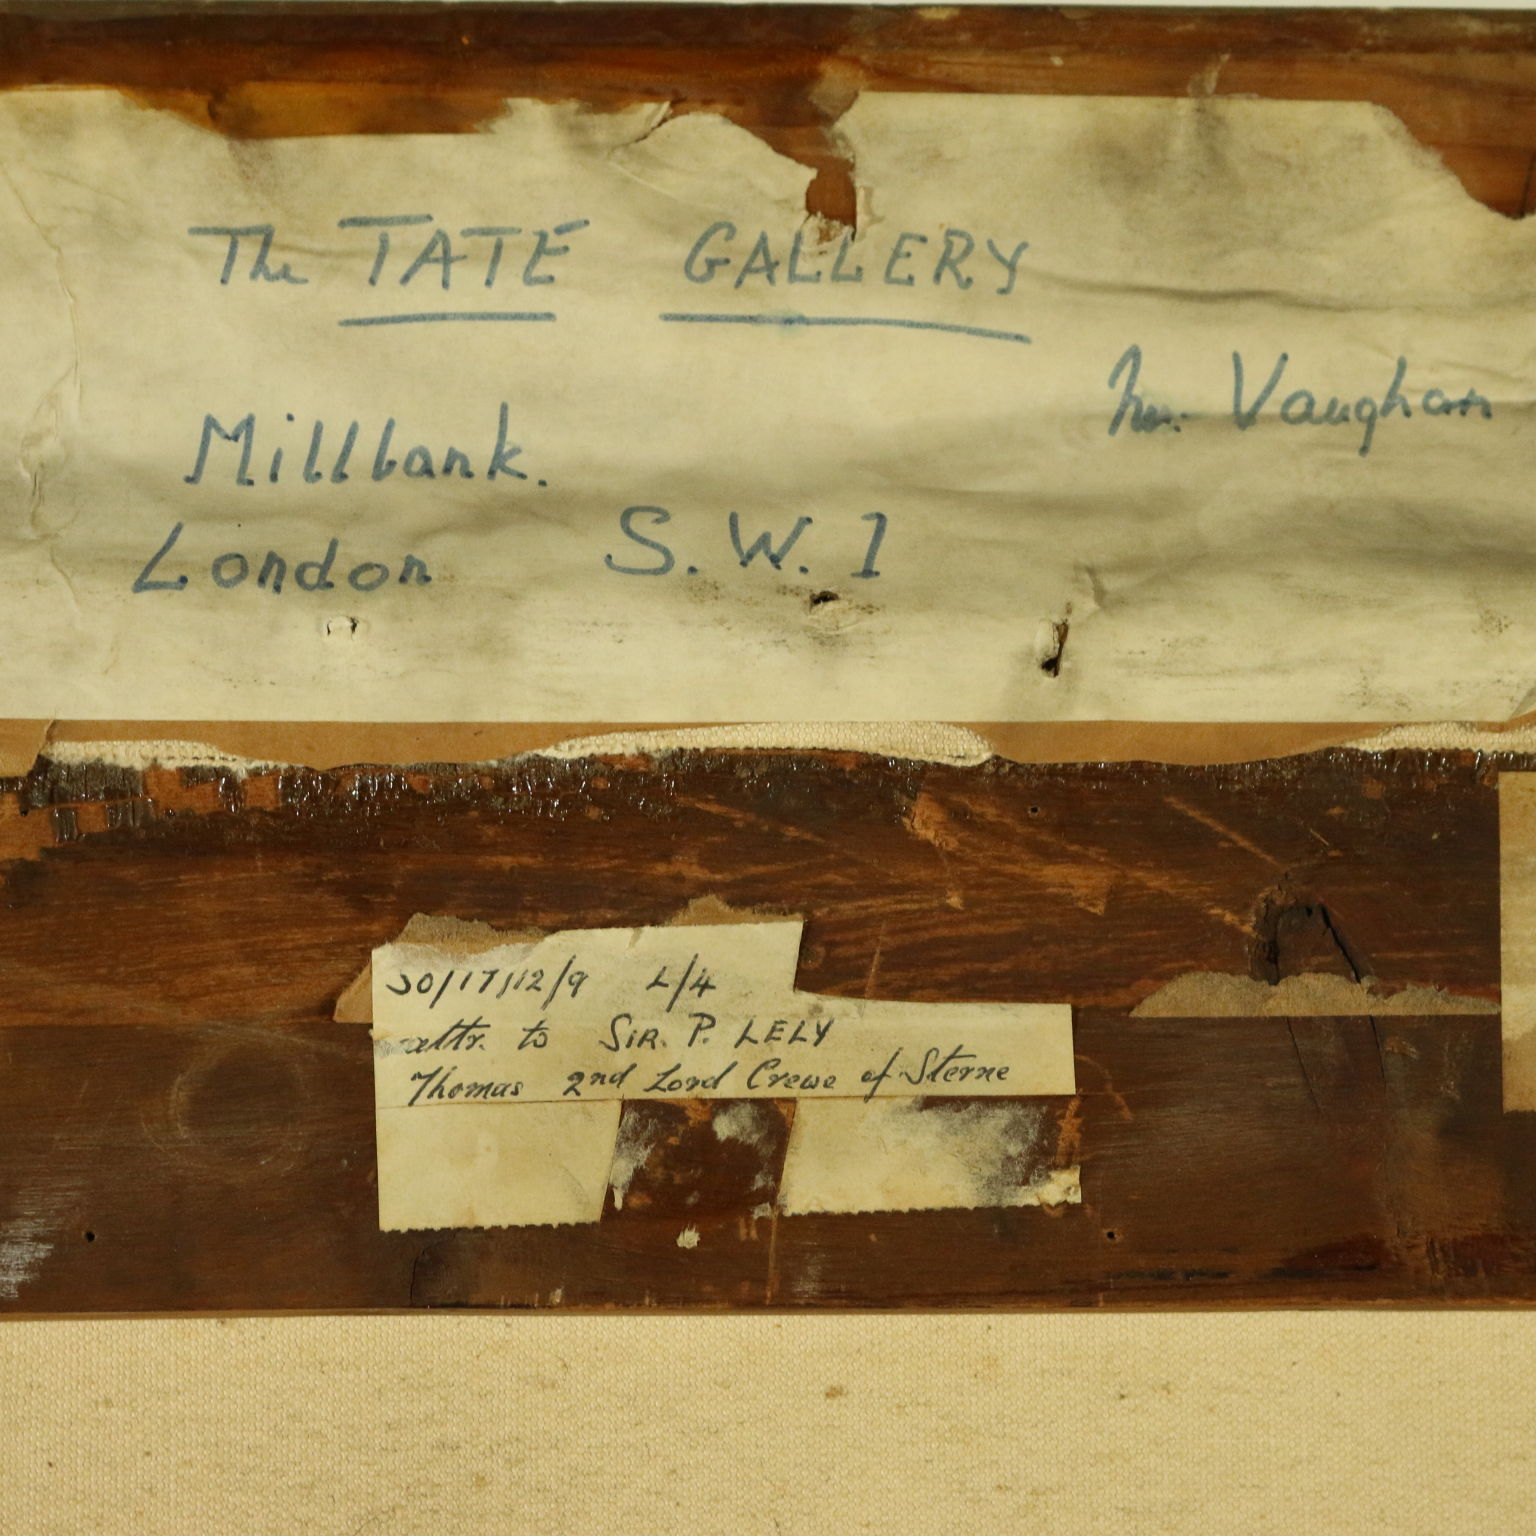 The TATE GALLERY
Mr. Vaughan
Millbank.
London S.W.1
30/17/12/9 L/4
attr. to SIR. P. LELY
Thomas 2nd Lord Crewe of Sterne